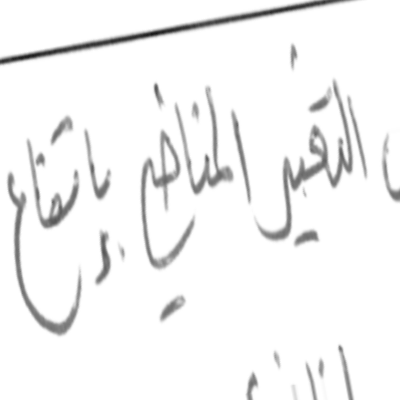 التغير المناخي بارتفاع